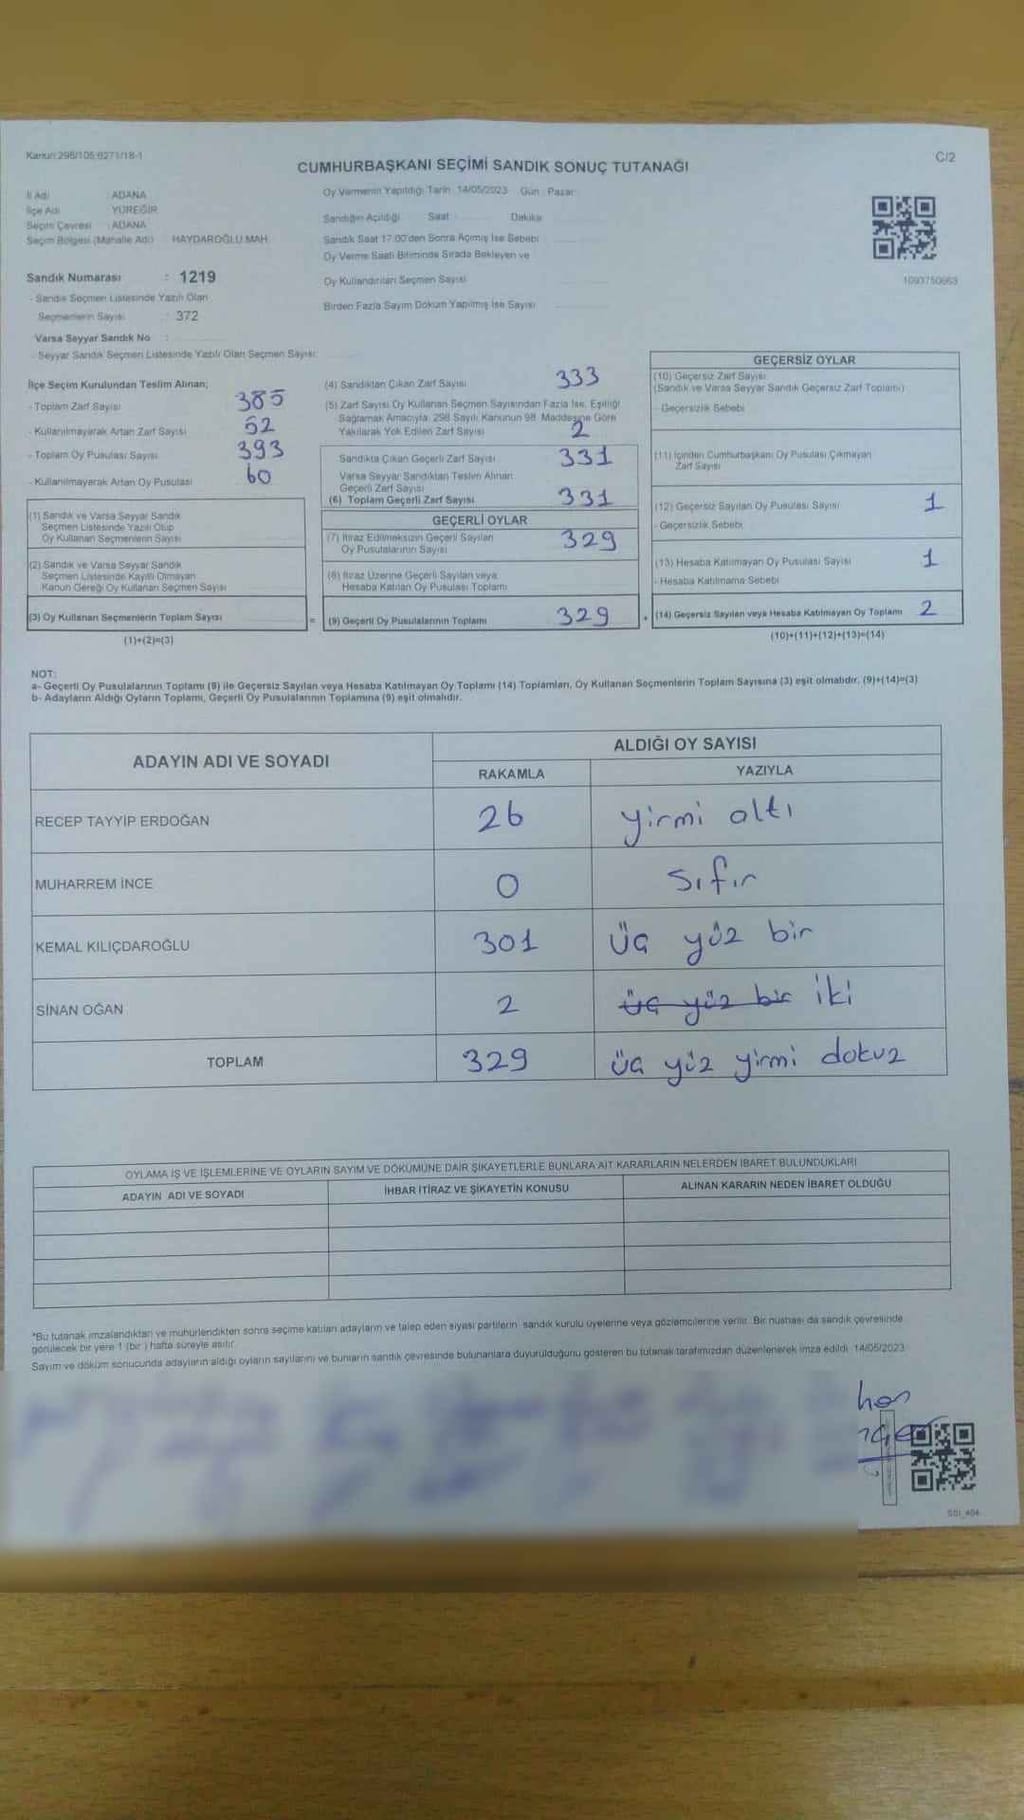 Kanun:298/105 6271/18-1
C/2
CUMHURBAŞKANI SEÇİMİ SANDIK SONUÇ TUTANAĞI
İl Adı : ADANA
İlçe Adı : YÜREĞİR
Seçim Çevresi : ADANA
Seçim Bölgesi (Mahalle Adı) HAYDAROĞLU MAH.
Sandık Numarası : 1219
- Sandık Seçmen Listesinde Yazılı Olan
Seçmenlerin Sayısı : 372
Varsa Seyyar Sandık No :
- Seyyar Sandık Seçmen Listesinde Yazılı Olan Seçmen Sayısı:
Oy Vermenin Yapıldığı Tarih: 14/05/2023 Gün : Pazar
Sandığın Açıldığı Saat Dakika
Sandık Saat 17.00'den Sonra Açılmış İse Sebebi
Oy Verme Saati Bitiminde Sırada Bekleyen ve
Oy Kullandırılan Seçmen Sayısı
Birden Fazla Sayım Döküm Yapılmış İse Sayısı
1093750663
İlçe Seçim Kurulundan Teslim Alınan;
- Toplam Zarf Sayısı 385
- Kullanılmayarak Artan Zarf Sayısı 52
- Toplam Oy Pusulası Sayısı 393
- Kullanılmayarak Artan Oy Pusulası 60
(1) Sandık ve Varsa Seyyar Sandık
Seçmen Listesinde Yazılı Olup
Oy Kullanan Seçmenlerin Sayısı
(2) Sandık ve Varsa Seyyar Sandık
Seçmen Listesinde Kayıtlı Olmayan
Kanun Gereği Oy Kullanan Seçmen Sayısı
(3) Oy Kullanan Seçmenlerin Toplam Sayısı
(1)+(2)=(3)
(4) Sandıktan Çıkan Zarf Sayısı 333
(5) Zarf Sayısı Oy Kullanan Seçmen Sayısından Fazla İse, Eşitliği
Sağlamak Amacıyla, 298 Sayılı Kanunun 98. Maddesine Göre
Yakılarak Yok Edilen Zarf Sayısı 2
Sandıkta Çıkan Geçerli Zarf Sayısı 331
Varsa Seyyar Sandıktan Teslim Alınan
Geçerli Zarf Sayısı
(6) Toplam Geçerli Zarf Sayısı 331
GEÇERLİ OYLAR
(7) İtiraz Edilmeksizin Geçerli Sayılan
Oy Pusulalarının Sayısı 329
(8) İtiraz Üzerine Geçerli Sayılan veya
Hesaba Katılan Oy Pusulası Toplamı
= (9) Geçerli Oy Pusulalarının Toplamı 329
GEÇERSİZ OYLAR
(10) Geçersiz Zarf Sayısı
(Sandık ve Varsa Seyyar Sandık Geçersiz Zarf Toplamı)
- Geçersizlik Sebebi
(11) İçinden Cumhurbaşkanı Oy Pusulası Çıkmayan
Zarf Sayısı
(12) Geçersiz Sayılan Oy Pusulası Sayısı 1
- Geçersizlik Sebebi
(13) Hesaba Katılmayan Oy Pusulası Sayısı 1
- Hesaba Katılmama Sebebi
+ (14) Geçersiz Sayılan veya Hesaba Katılmayan Oy Toplamı 2
(10)+(11)+(12)+(13)=(14)
NOT:
a- Geçerli Oy Pusulalarının Toplamı (9) ile Geçersiz Sayılan veya Hesaba Katılmayan Oy Toplamı (14) Toplamları, Oy Kullanan Seçmenlerin Toplam Sayısına (3) eşit olmalıdır. (9)+(14)=(3)
b- Adayların Aldığı Oyların Toplamı, Geçerli Oy Pusulalarının Toplamına (9) eşit olmalıdır.
ADAYIN ADI VE SOYADI ALDIĞI OY SAYISI
RAKAMLA YAZIYLA
RECEP TAYYİP ERDOĞAN 26 yirmi altı
MUHARREM İNCE 0 sıfır
KEMAL KILIÇDAROĞLU 301 üç yüz bir
SİNAN OĞAN 2 üç yüz bir iki
TOPLAM 329 üç yüz yirmi dokuz
OYLAMA İŞ VE İŞLEMLERİNE VE OYLARIN SAYIM VE DÖKÜMÜNE DAİR ŞİKAYETLERLE BUNLARA AİT KARARLARIN NELERDEN İBARET BULUNDUKLARI
ADAYIN ADI VE SOYADI İHBAR İTİRAZ VE ŞİKAYETİN KONUSU ALINAN KARARIN NEDEN İBARET OLDUĞU
*Bu tutanak imzalandıktan ve mühürlendikten sonra seçime katılan adayların ve talep eden siyasi partilerin sandık kurulu üyelerine veya gözlemcilerine verilir. Bir nüshası da sandık çevresinde
görülecek bir yere 1 (bir ) hafta süreyle asılır.
Sayım ve döküm sonucunda adayların aldığı oyların sayılarını ve bunların sandık çevresinde bulunanlara duyurulduğunu gösteren bu tutanak tarafımızdan düzenlenerek imza edildi. 14/05/2023